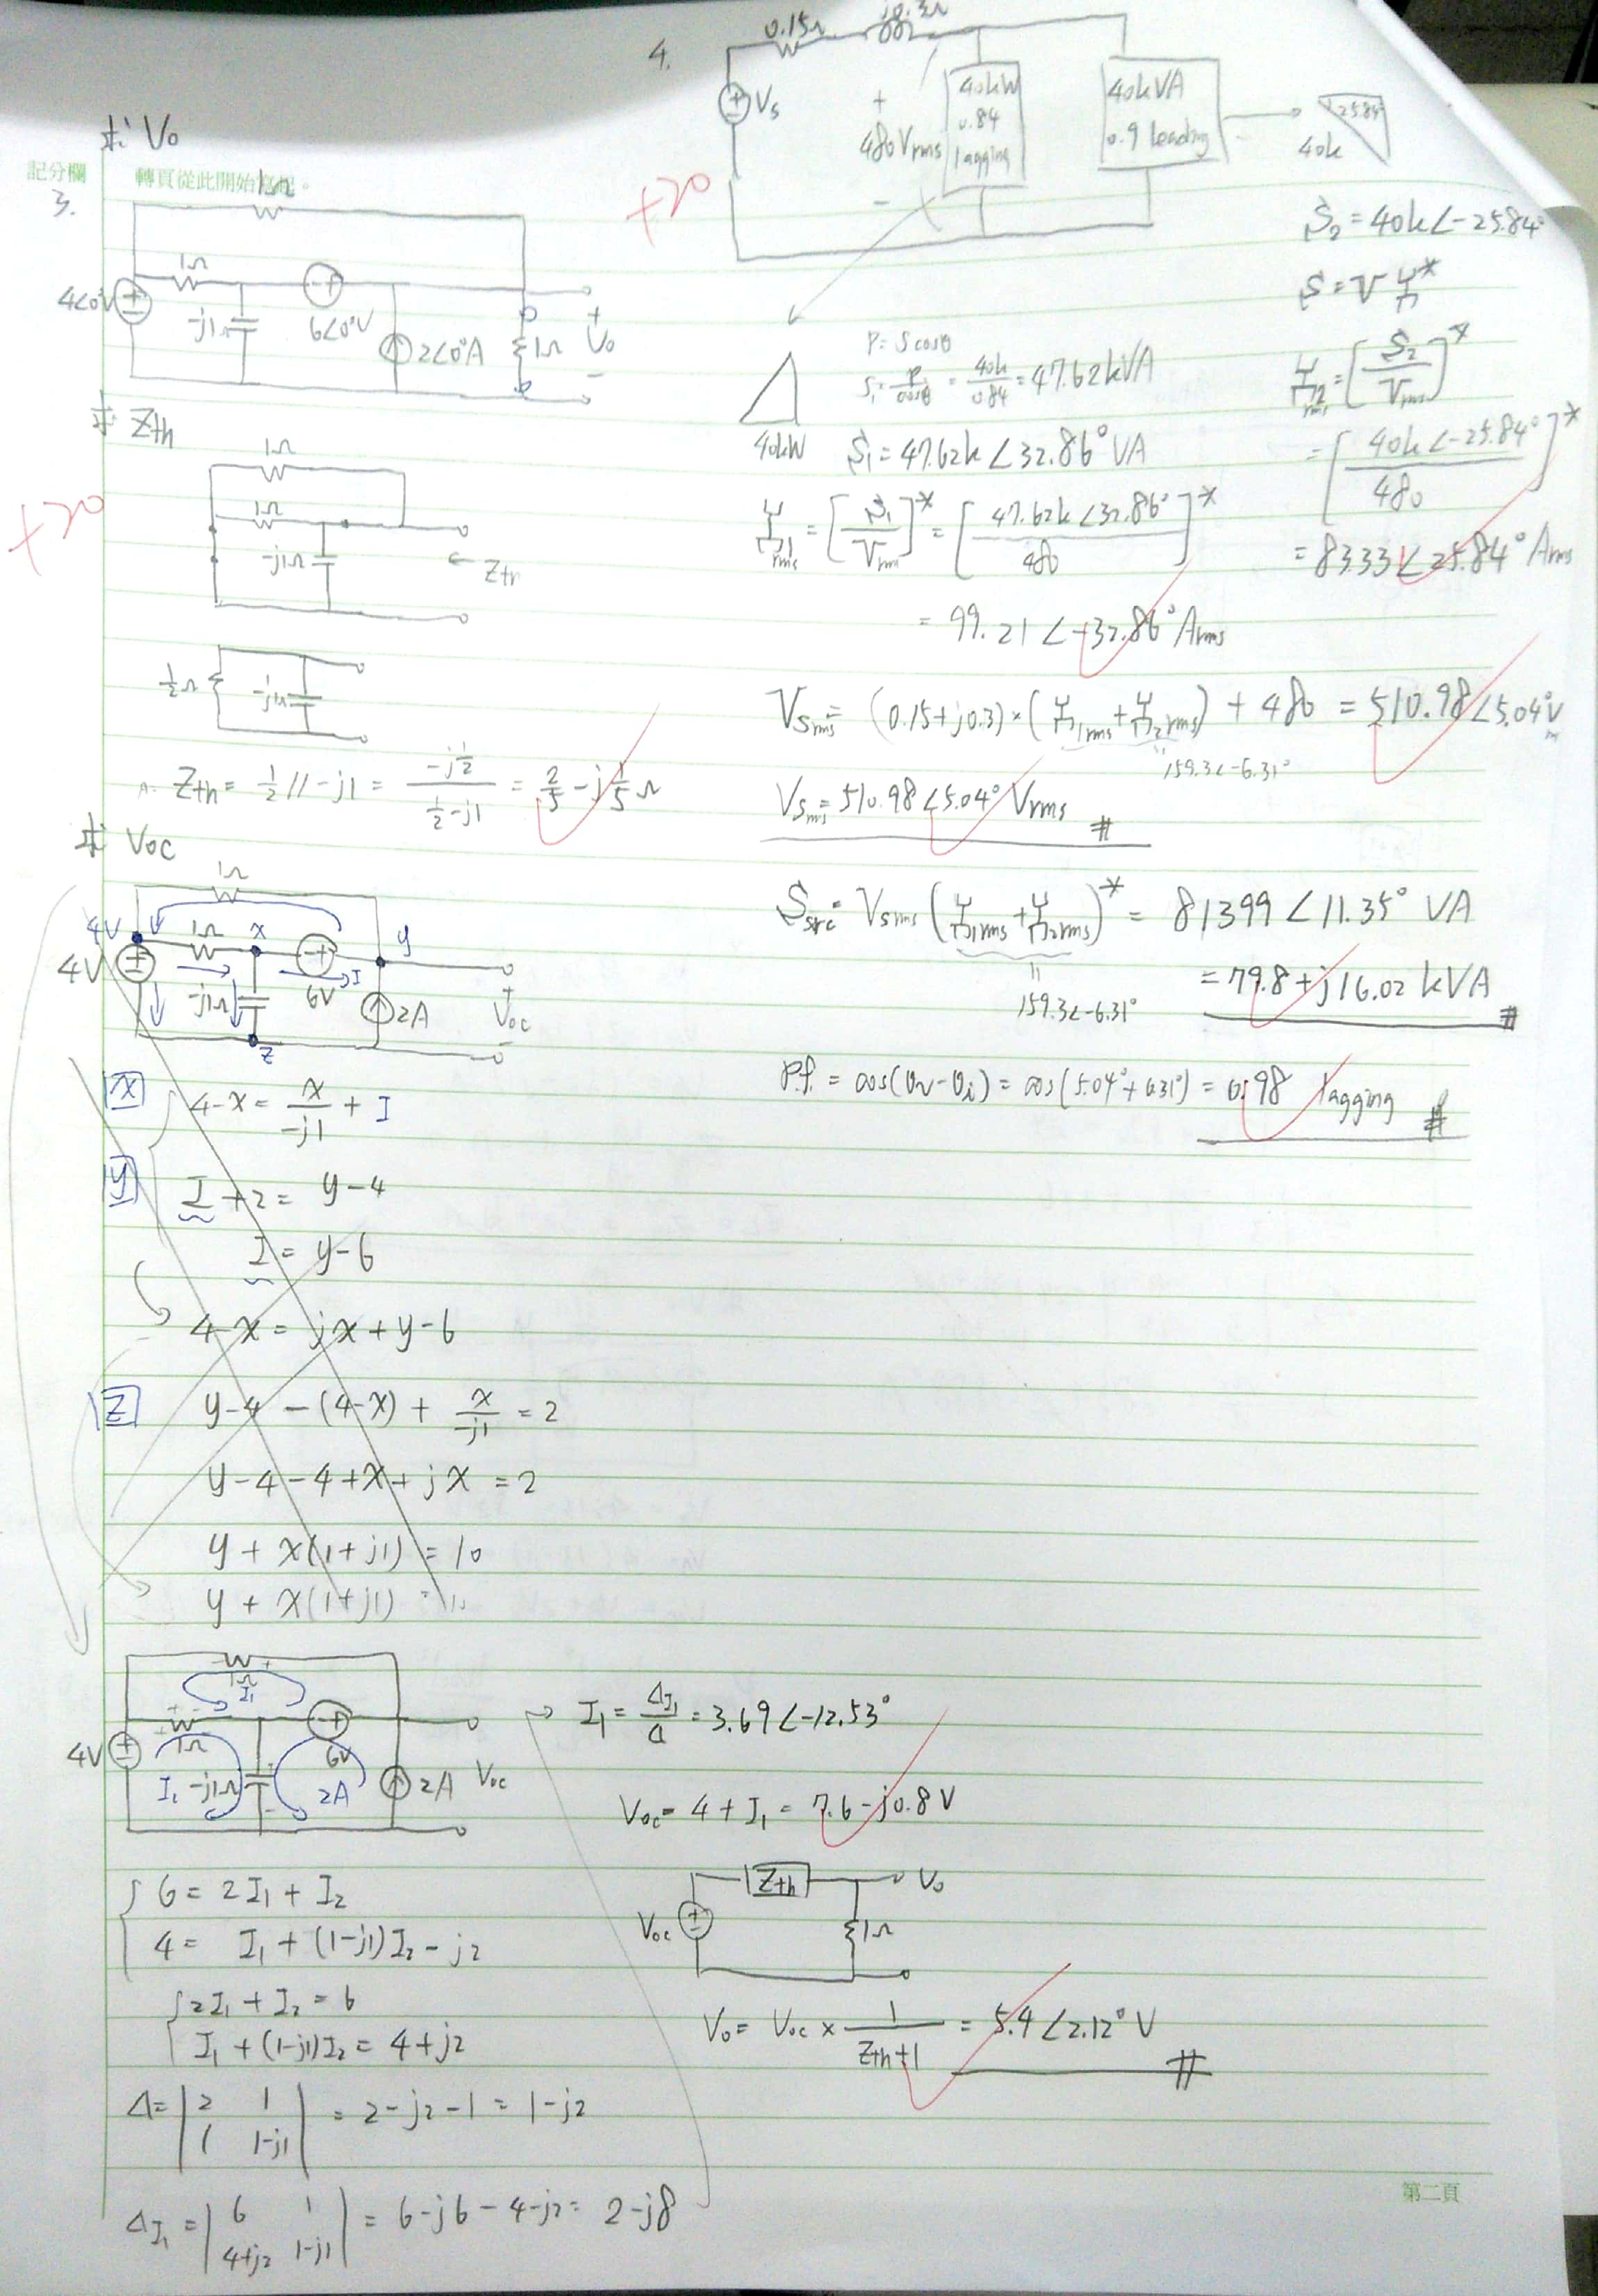 求 V₀
記分欄 轉頁從此開始寫起。
3.
1Ω
4∠0°V
1Ω
-j1Ω
6∠0°V
2∠0°A
1Ω
+
V₀
-
+20
求 Zth
1Ω
1Ω
-j1Ω
← Zth
½Ω
-j1Ω
∴ Zth = ½ // -j1 = (-j½)/(½-j1) = 2/5 - j1/5 Ω
求 Voc
1Ω
4V 1Ω x y
4V
-j1Ω
6V
I
2A
+
Voc
-
z
[x] 4-x = x/(-j1) + I
[y] I + 2 = y-4
I = y-6
4-x = jx + y-6
[z] y-4 - (4-x) + x/(-j1) = 2
y-4-4+x+jx = 2
y + x(1+j1) = 10
y + x(1+j1) = 10
1Ω
I₁
1Ω
6V
4V
I₂
-j1Ω
2A
2A
Voc
6 = 2I₁ + I₂
4 = I₁ + (1-j1)I₂ - j2
2I₁ + I₂ = 6
I₁ + (1-j1)I₂ = 4+j2
Δ = |2 1; 1 1-j1| = 2-j2-1 = 1-j2
ΔI₁ = |6 1; 4+j2 1-j1| = 6-j6-4-j2 = 2-j8
→ I₁ = ΔI₁/Δ = 3.69∠-12.53°
Voc = 4 + I₁ = 7.6-j0.8 V
Zth
V₀
Voc
1Ω
V₀ = Voc × 1/(Zth+1) = 5.4∠2.12° V #
4.
0.15Ω
j0.3Ω
Vs
+
480Vrms
-
40kW
0.84
lagging
40kVA
0.9 leading
25.84°
40k
+20
40kW
P = S cosθ
S₁ = P/cosθ = 40k/0.84 = 47.62kVA
S₁ = 47.62k∠32.86° VA
I₁rms = [S₁/Vrms]* = [47.62k∠32.86°/480]*
= 99.21∠-32.86° Arms
S₂ = 40k∠-25.84°
S = V I*
I₂rms = [S₂/Vrms]*
= [40k∠-25.84°/480]*
= 83.33∠25.84° Arms
Vsrms = (0.15+j0.3)×(I₁rms+I₂rms) + 480 = 510.98∠5.04° V
159.3∠-6.31°
Vsrms = 510.98∠5.04° Vrms #
Ssrc = Vsrms(I₁rms+I₂rms)* = 81399∠11.35° VA
159.3∠-6.31°
= 79.8+j16.02 kVA #
P.f. = cos(θv-θi) = cos(5.04°+6.31°) = 0.98 lagging #
第二頁